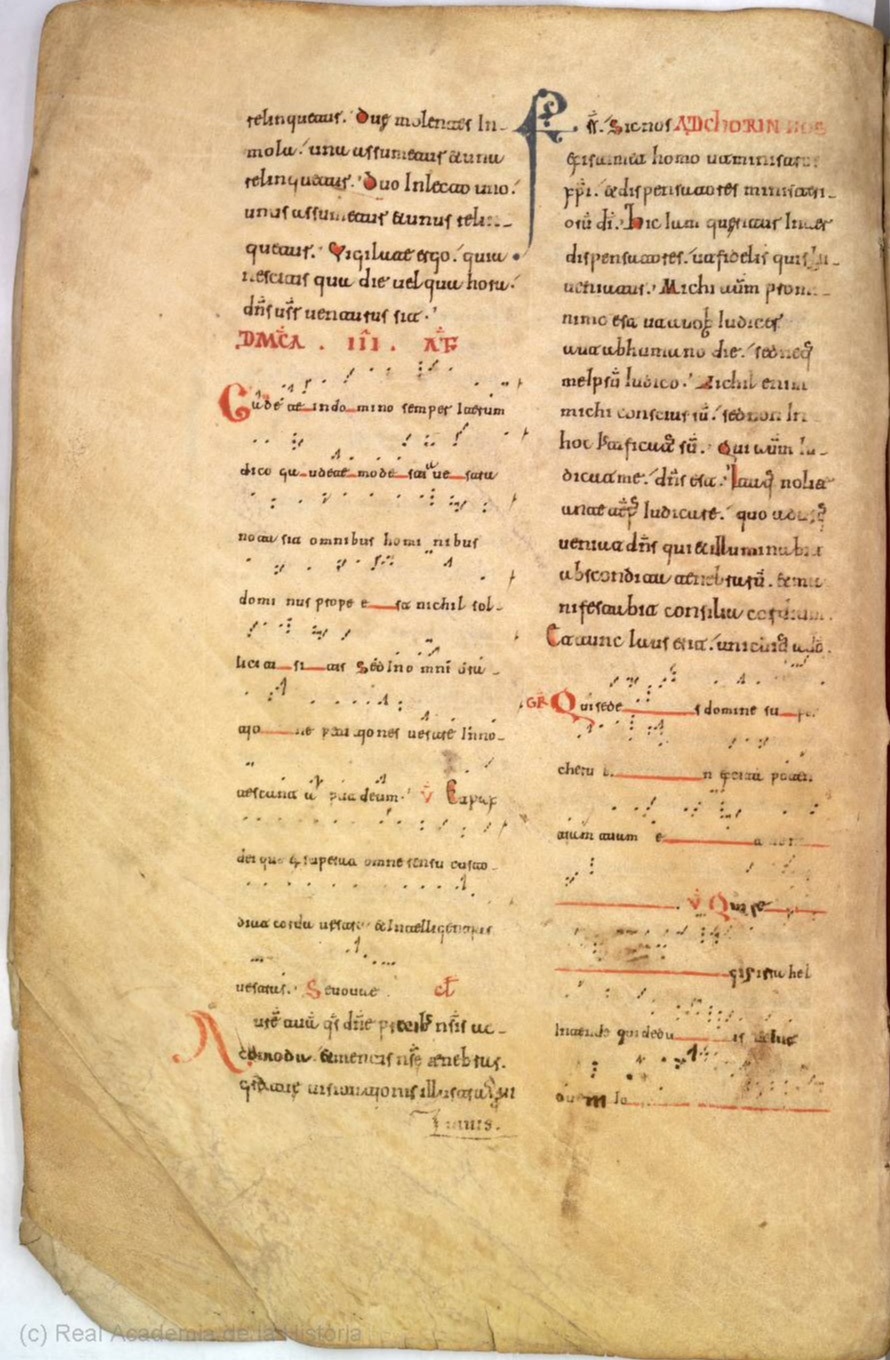 relinquetur. Due molentes In
mola. una assumetur & una
relinquetur. Duo Inlecto uno.
unus assumetur & unus relin
quetur. Vigilate ergo. quia
nescitis qua die uel qua hora
dñs ur̃ uenturus sit.
DMCA . III . AF
Gaudete indomino semper Iterum
dico gaudete modestia uestra
nota sit omnibus hominibus
dominus prope est nichil sol
liciti sitis Sed In omni ora
tione petitiones uestre Inno
tescant aput deum. V Et pax
dei que exsuperat omne sensu custo
diat corda uestra & Intelligentias
uestras. Seuouae cł
Aurẽ tuã q̃s dñe precib nr̃is ac
comoda. & mentis nr̃e tenebras.
gratia tue uisitationis illustra Qui
Fr̃s. Sic nos AD CHORINTIOS
existimet homo ut ministros
xp̃i. & dispensatores ministeri
orũ di. Hic Iam queritur Inter
dispensatores. ut fidelis quis In
ueniatur. Michi autẽ pro mi
nimo est ut a uob Iudicer
aut ab humano die. sed neq
meipsũ Iudico. Nichil enim
michi conscius sũ. sed non In
hoc Iustificatus sũ. Qui autẽ Iu
dicat me. dñs est. Itaq nolite
ante tẽp Iudicare. quo adusq
ueniat dñs qui & illuminabit
abscondita tenebrarũ. & ma
nifestabit consilia cordium.
Et tunc laus erit. unicuiq a dõ.
GR Qui sedes domine super
cherubin excita poten
tiam tuam et ueni
V Qui re
gis israhel
Intende qui deducis uelut
ouem Io